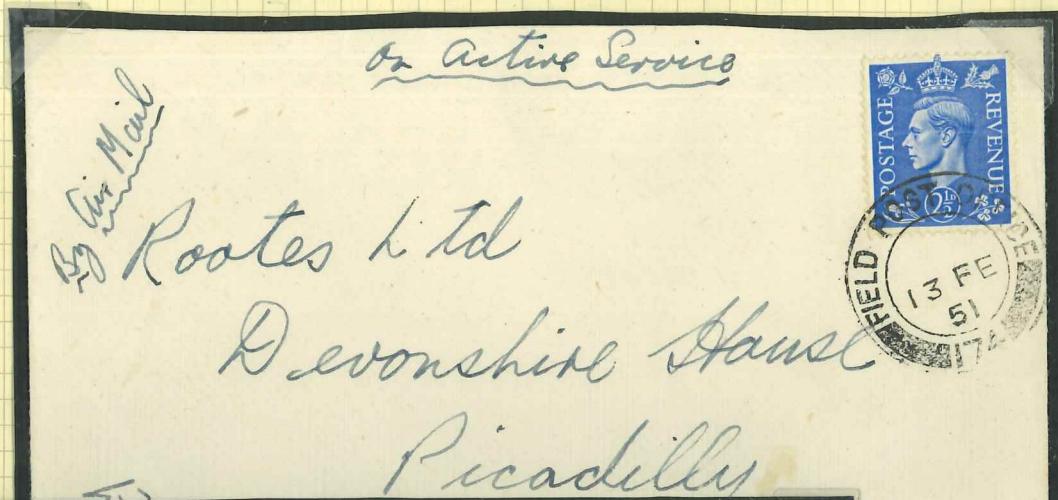 On Active Service
By Air Mail
POSTAGE REVENUE
2½D
FIELD POST OFFICE
13 FE
51
174
Rootes Ltd
Devonshire House
Picadilly